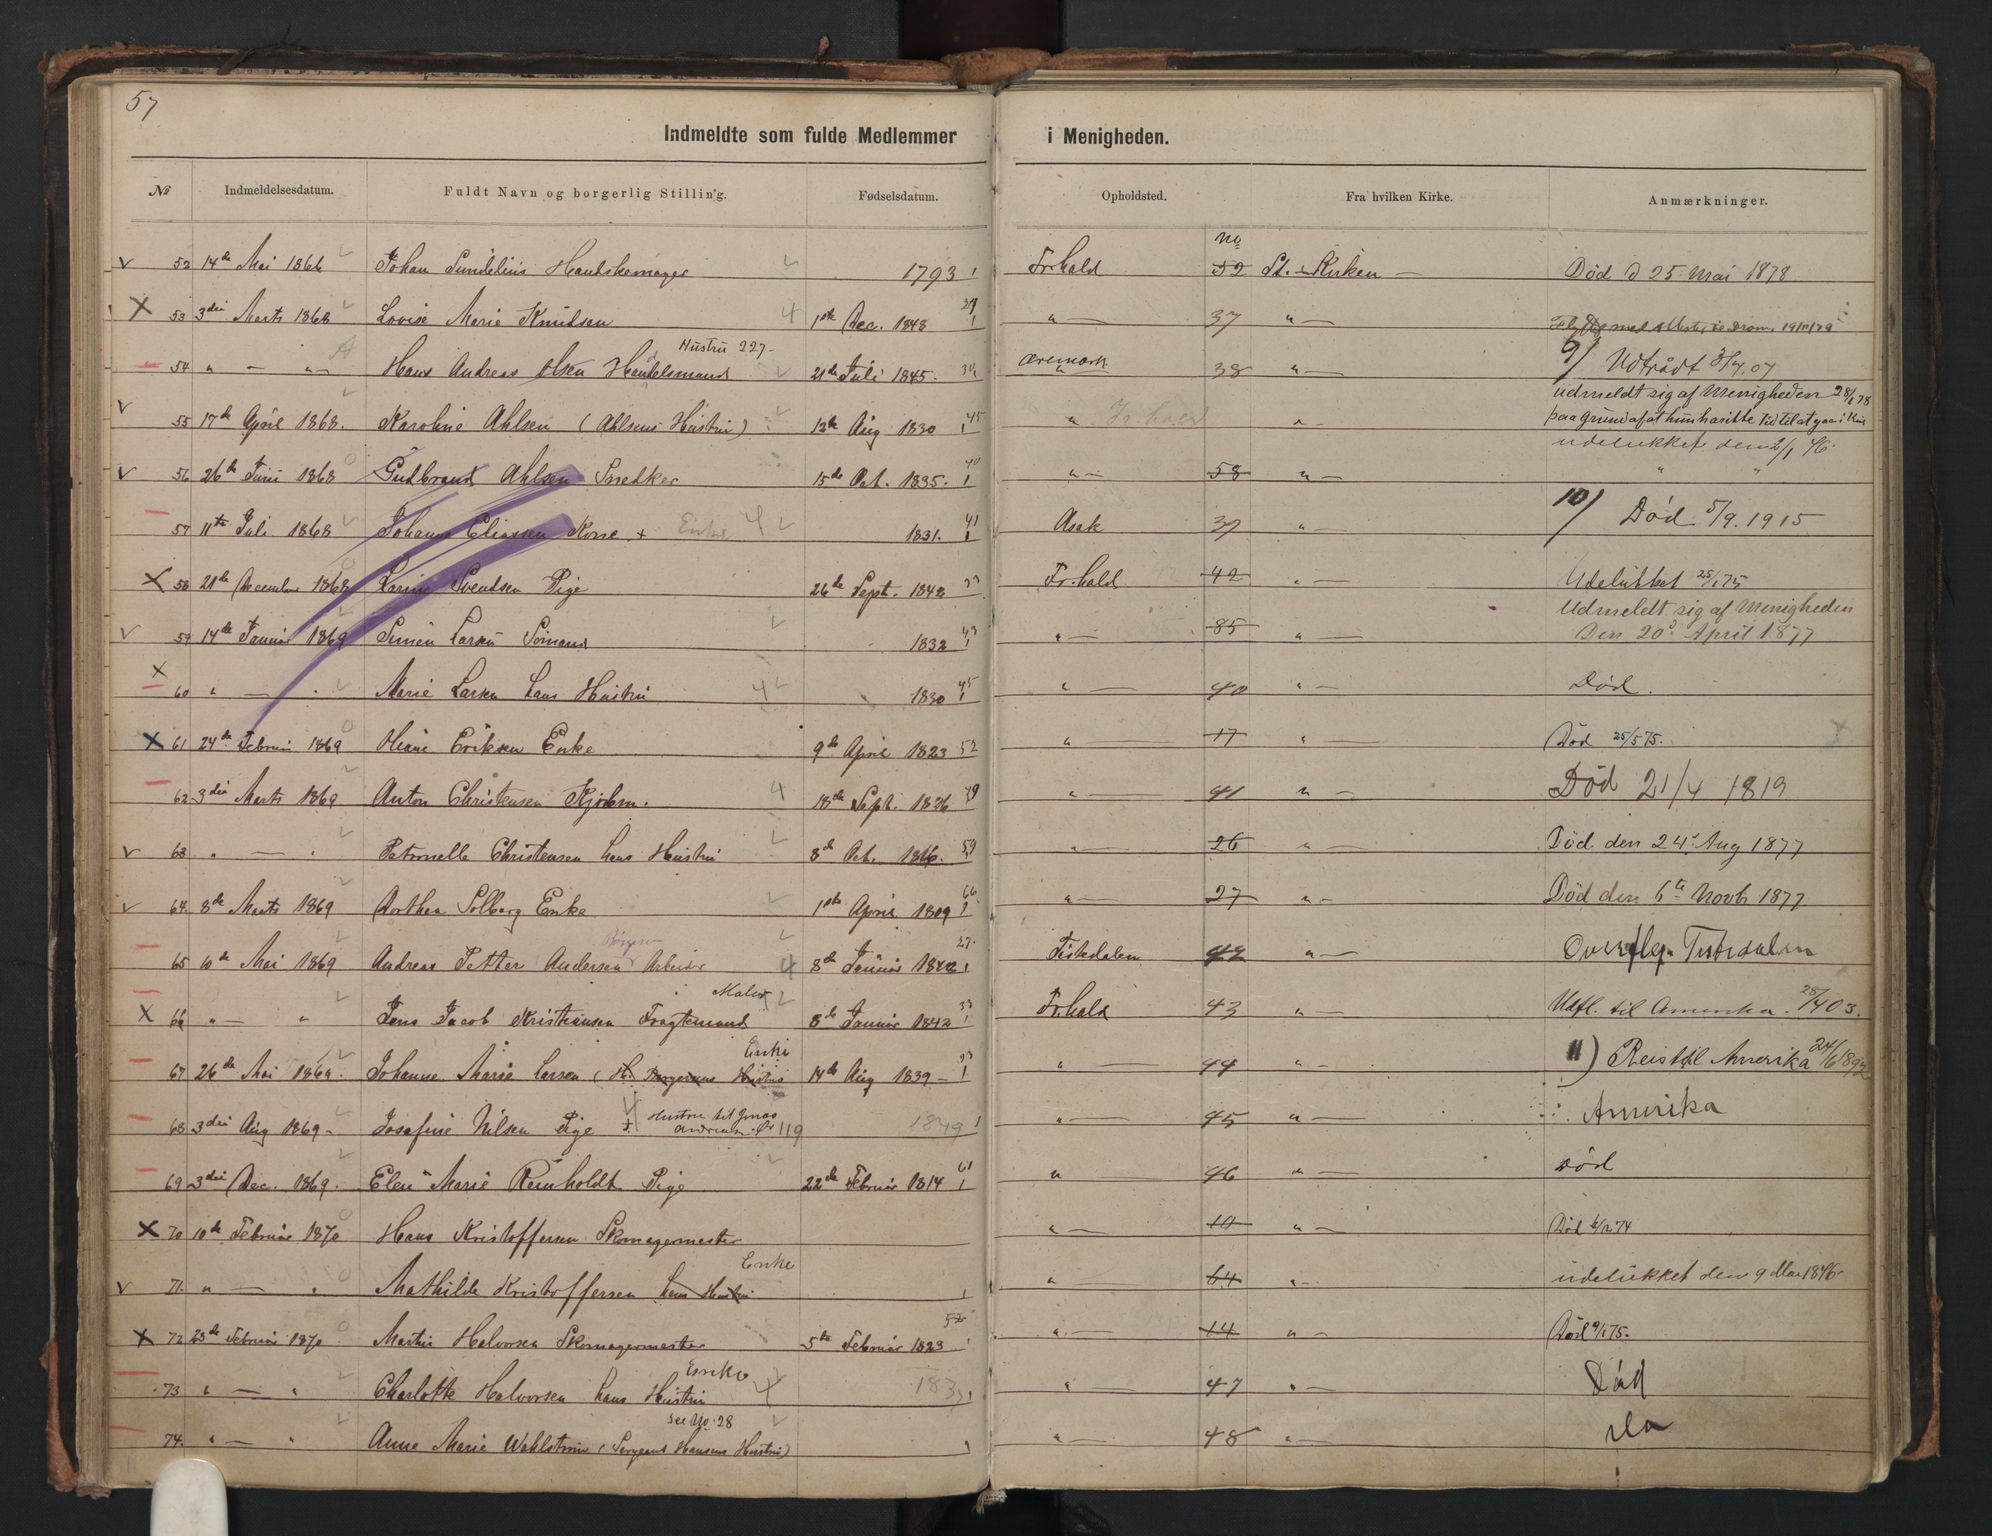 57
Indmeldte som fulde Medlemmer i Menigheden.
No Indmeldelsesdatum. Fuldt Navn og borgerlig Stilling. Fødselsdatum. Opholdsted. Fra hvilken Kirke. Anmærkninger.
52 14de Mai 1866 Johan Sundelius Handskemager 1793 Fr.hald No 52 St. Kirken — Død d 25 Mai 1878
53 3die Marts 1868 Lovise Marie Knudsen 1ste Dec. 1848 " — 37 " —
Hustru 227
54 " — " — Hans Andreas Olsen Handelsmand 21de Juli 1845 Aremark 38 " — 9/ Udtrådt 3/7.07
55 17de April 1868. Karoline Ahlsen (Ahlsens Hustru) 12te Aug 1830 45 " Fr.hald " — Udmeldt sig af Menigheden 28/1 78
paa Grund af at hun har ikke Tid til at gaa i
56 26de Juni 1868 Gudbrand Ahlsen Snedker 15de Oct. 1835. 40 " — 58 " — udelukket den 2/1 76
57 11te Juli 1868 Johanne Eliassen Korse + Enke 4 1831. 41 Asak 39 " — 10/ Død 5/9.1915
58 21de December 1868 Larine Svendsen Pige 26de Sept. 1842 33 Fr.hald 42 " — Udelukket 25/1 75
59 14de Januar 1869 Simen Larsen Sømand 1832 43 " — 85 " — Udmeldt sig af Menigheden
Den 20de April 1877
60 " — " Marie Larsen hans Hustru 4 1830 45 " — 40 " — Død.
61 24de Februar 1869 Eriksen Enke 9de April 1823 52 " — 17 " — Død 25/5 75.
62 3die Marts 1869 Anton Christensen 4 18de Sept. 1826 49 " — 41 " — Død 21/4 1819
63 " — " Petronelle Christensen hans Hustru 8de Oct. 1816. 59 " — 26 " — Død den 24de Aug 1877
64 8de Marts 1869 Dorthea Solberg Enke 1ste April 1809 66 " — 27 " — Død den 6te Novb 1877
65 10de Mai 1869 Andreas Petter Andersen Arbeider 4 8de Januar 1842 27. Fiskedalen 42 " —
Maler
66 " — " Jens Jacob Kristiansen Fragtemand 8de Januar 1842 33 Fr.hald 43 " — Udfl. til Amerika. 25/4 03.
Enke
67 26de Mai 1869. Johanne Marie Larsen (H. Hustru 14de Aug 1839 — " — 44 " — 11) Reist til Amerika 24/6 189
68 3die Aug 1869 — Josefine Nilsen Pige 4 Hustru til Jonas
119 1849 " — 45 " — Amerika
69 3die Dec. 1869. Elen Marie Reinholdt Pige 22de Februar 1814 61 " 46 " — Død
70 10de Februar 1870 Hans Kristoffersen Skomagermester " — 10 " — Død 6/12 74
Enke
71. " — " Mathilde Kristoffersen hans Hustru " — 64 " — udelukket den 9 Mai 1876
72 23de Februar 1870 Martin Halvorsen Skomagermester 5te Februar 1823 52 " — 14 " — Død 9/1 75.
Enke
73 " — " Charlotte Halvorsen hans Hustru 4 183 " — 47 " — Død
see No 28
74. " — " Anne Marie Wahlstrøm (Sergeant Hansens Hustru) " — 48 " — Da